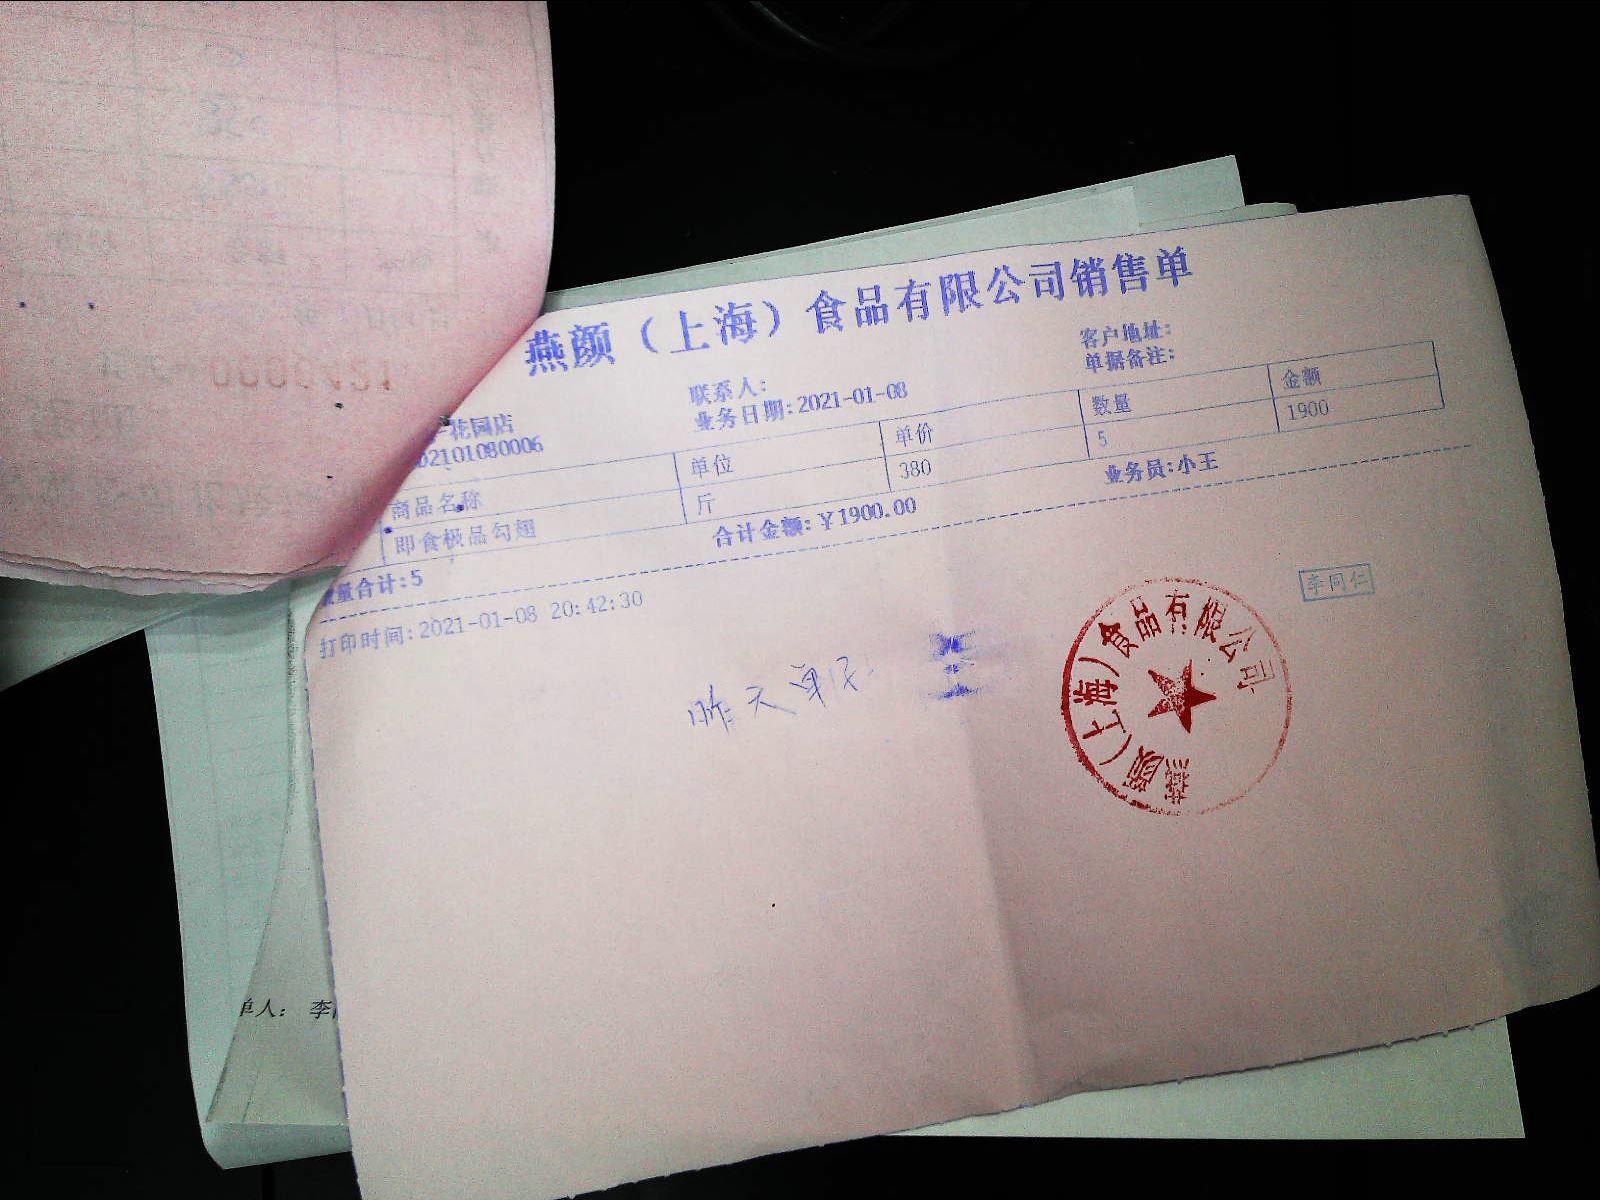 燕颜（上海）食品有限公司销售单
客户地址:
联系人:
单据备注:
花园店
业务日期:2021-01-08
02101080006
商品名称 单位 单价 数量 金额
即食极品勾翅 斤 380 5 1900
量合计:5 合计金额:￥1900.00 业务员:小王
打印时间:2021-01-08 20:42:30
李同仁
昨天单
燕颜（上海）食品有限公司
0000491
单人: 李